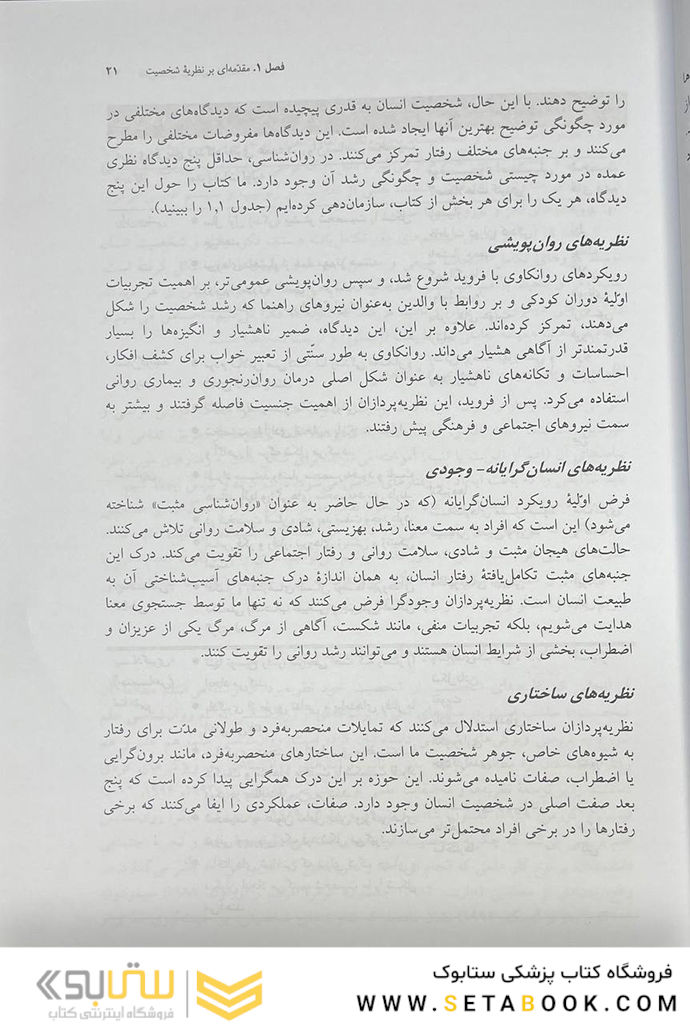 فصل ۱. مقدّمه‌ای بر نظریهٔ شخصیت ۲۱
را توضیح دهند. با این حال، شخصیت انسان به قدری پیچیده است که دیدگاه‌های مختلفی در
مورد چگونگی توضیح بهترین آنها ایجاد شده است. این دیدگاه‌ها مفروضات مختلفی را مطرح
می‌کنند و بر جنبه‌های مختلف رفتار تمرکز می‌کنند. در روان‌شناسی، حداقل پنج دیدگاه نظری
عمده در مورد چیستی شخصیت و چگونگی رشد آن وجود دارد. ما کتاب را حول این پنج
دیدگاه، هر یک را برای هر بخش از کتاب، سازمان‌دهی کرده‌ایم (جدول ۱,۱ را ببینید).
نظریه‌های روان‌پویشی
رویکردهای روانکاوی با فروید شروع شد، و سپس روان‌پویشی عمومی‌تر، بر اهمیت تجربیات
اوّلیهٔ دوران کودکی و بر روابط با والدین به‌عنوان نیروهای راهنما که رشد شخصیت را شکل
می‌دهند، تمرکز کرده‌اند. علاوه بر این، این دیدگاه، ضمیر ناهشیار و انگیزه‌ها را بسیار
قدرتمندتر از آگاهی هشیار می‌داند. روانکاوی به طور سنّتی از تعبیر خواب برای کشف افکار،
احساسات و تکانه‌های ناهشیار به عنوان شکل اصلی درمان روان‌رنجوری و بیماری روانی
استفاده می‌کرد. پس از فروید، این نظریه‌پردازان از اهمیت جنسیت فاصله گرفتند و بیشتر به
سمت نیروهای اجتماعی و فرهنگی پیش رفتند.
نظریه‌های انسان‌گرایانه- وجودی
فرض اوّلیهٔ رویکرد انسان‌گرایانه (که در حال حاضر به عنوان «روان‌شناسی مثبت» شناخته
می‌شود) این است که افراد به سمت معنا، رشد، بهزیستی، شادی و سلامت روانی تلاش می‌کنند.
حالت‌های هیجان مثبت و شادی، سلامت روانی و رفتار اجتماعی را تقویت می‌کند. درک این
جنبه‌های مثبت تکامل‌یافتهٔ رفتار انسان، به همان اندازهٔ درک جنبه‌های آسیب‌شناختی آن به
طبیعت انسان است. نظریه‌پردازان وجودگرا فرض می‌کنند که نه تنها ما توسط جستجوی معنا
هدایت می‌شویم، بلکه تجربیات منفی، مانند شکست، آگاهی از مرگ، مرگ یکی از عزیزان و
اضطراب، بخشی از شرایط انسان هستند و می‌توانند رشد روانی را تقویت کنند.
نظریه‌های ساختاری
نظریه‌پردازان ساختاری استدلال می‌کنند که تمایلات منحصربه‌فرد و طولانی مدّت برای رفتار
به شیوه‌های خاص، جوهر شخصیت ما است. این ساختارهای منحصربه‌فرد، مانند برون‌گرایی
یا اضطراب، صفات نامیده می‌شوند. این حوزه بر این درک همگرایی پیدا کرده است که پنج
بعد صفت اصلی در شخصیت انسان وجود دارد. صفات، عملکردی را ایفا می‌کنند که برخی
رفتارها را در برخی افراد محتمل‌تر می‌سازند.
فروشگاه کتاب پزشکی ستابوک
WWW.SETABOOK.COM
ستابوک
فروشگاه اینترنتی کتاب